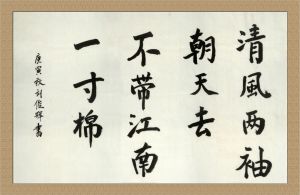 清風两袖
朝天去
不带江南
一寸棉
庚寅秋刘俊辉書